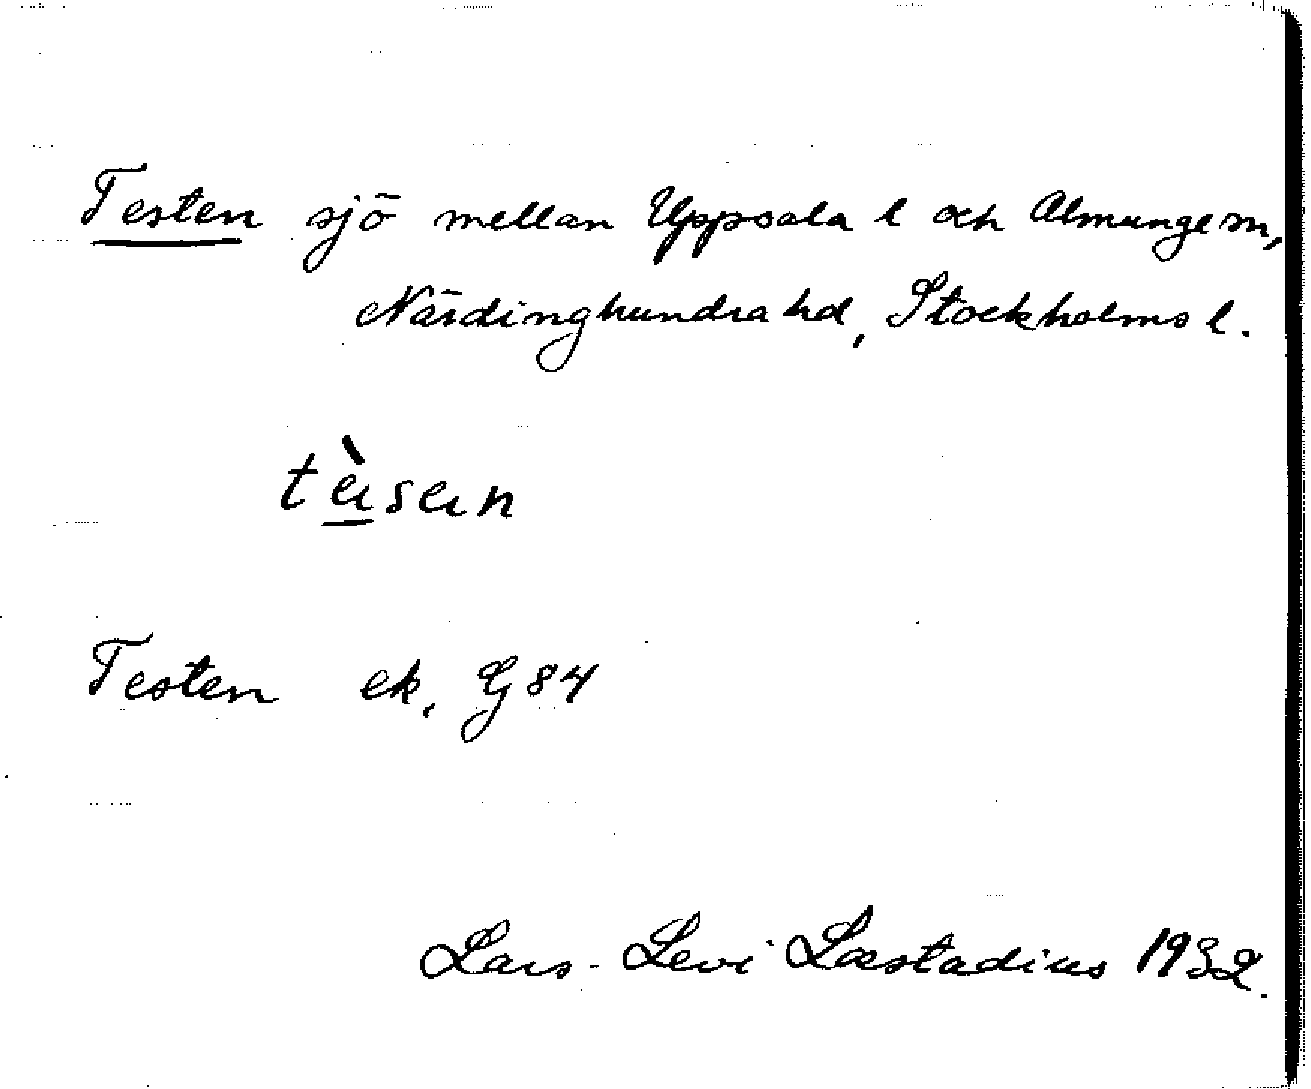 Testen sjö mellan Uppsala l och Almunge sn,
Närdinghundra hd, Stockholms l.
tǜsɐn
Testen ek, G 84
Lars-Levi Læstadius 1932.